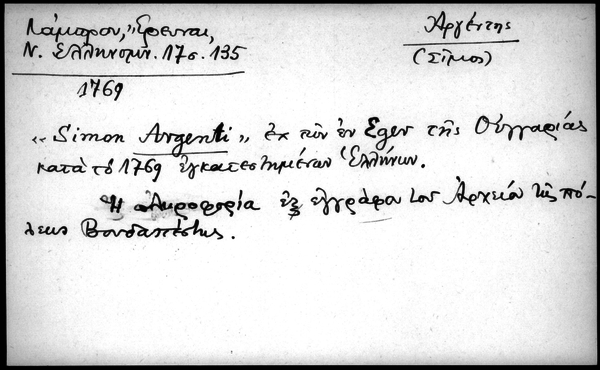 Λάμπρου, "Έρευναι,
Ν. Ἑλληνομν. 17 σ. 135
1769
Ἀργέντης
(Σῖμος)
« Simon Argenti » ἐκ τῶν ἐν Eger τῆς Οὐγγαρίας
κατὰ τὸ 1769 ἐγκατεστημένων Ἑλλήνων.
Ἡ πληροφορία ἐξ ἐγγράφου τοῦ Ἀρχείου τῆς πό-
λεως Βουδαπέστης.